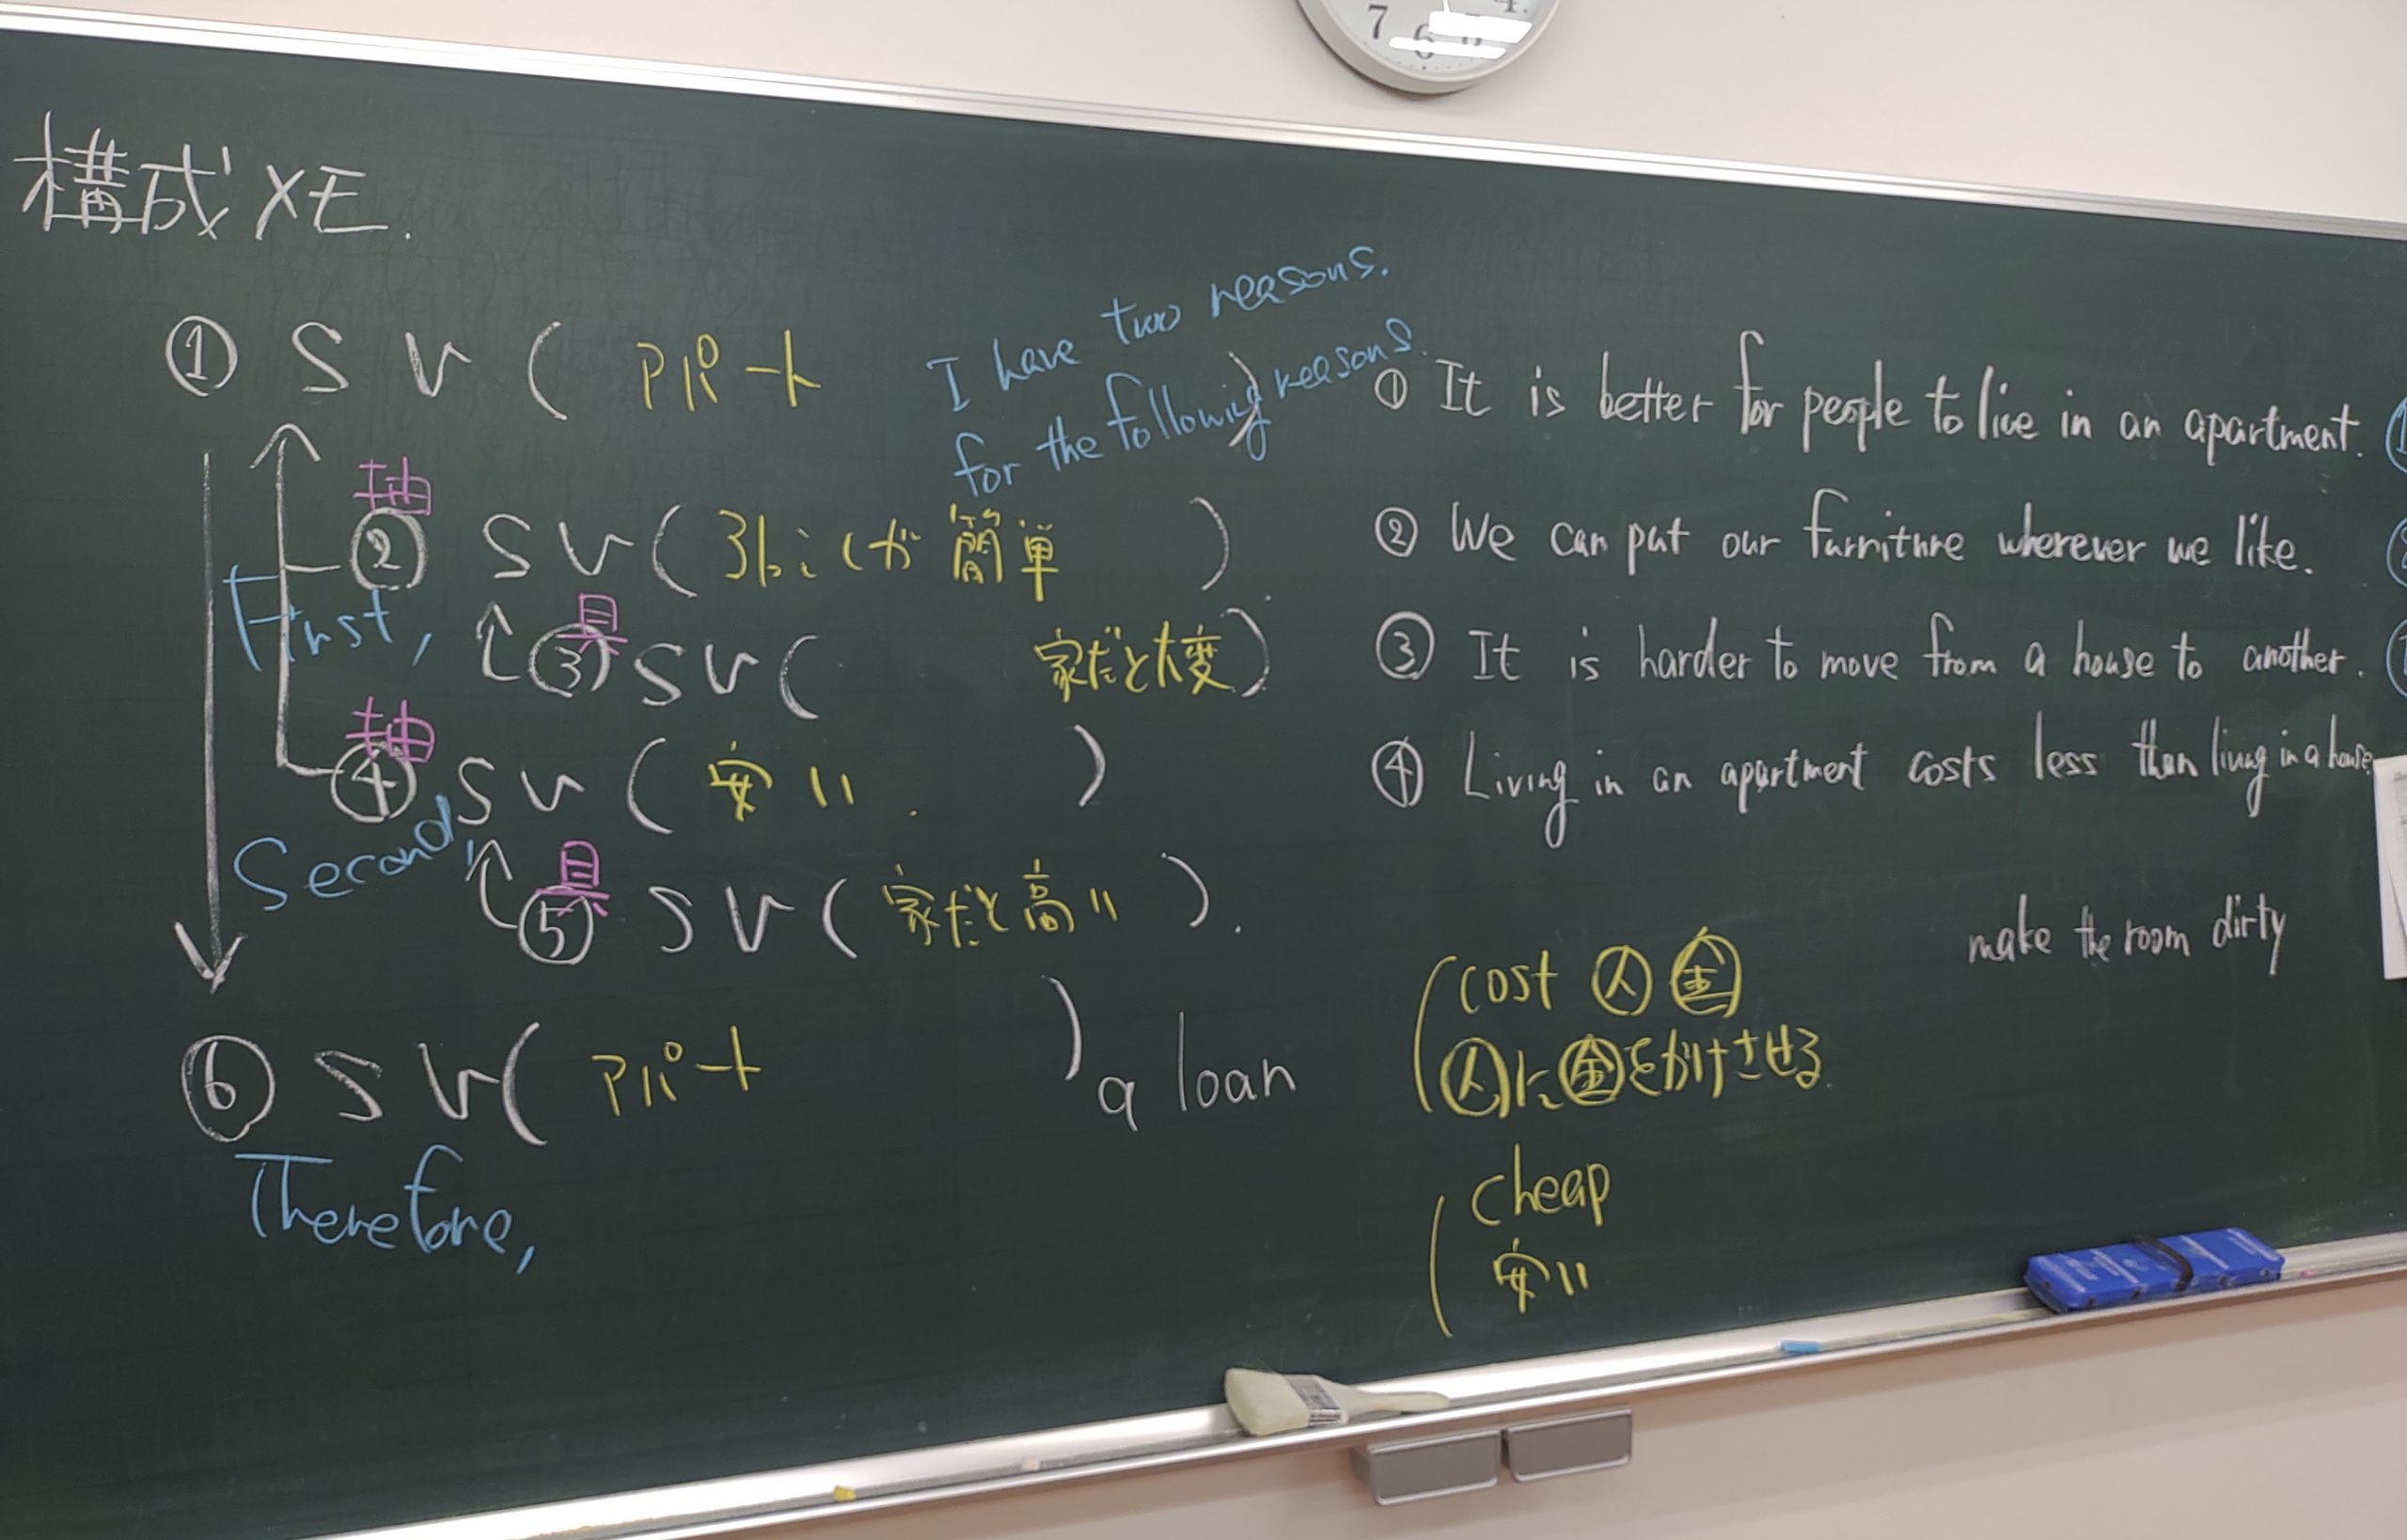 構成メモ.
① S V ( アパート )
I have two reasons.
for the following reasons.
抽
② S V ( 引っこしが簡単 )
First,
具
③ S V ( 家だと大変 )
抽
④ S V ( 安い. )
Second,
具
⑤ S V ( 家だと高い ).
⑥ S V ( アパート )
Therefore,
a loan
① It is better for people to live in an apartment.
② We can put our furniture wherever we like.
③ It is harder to move from a house to another.
④ Living in an apartment costs less than living in a house
make the room dirty
cost 人 金
人に金をかけさせる.
cheap
安い
7 6